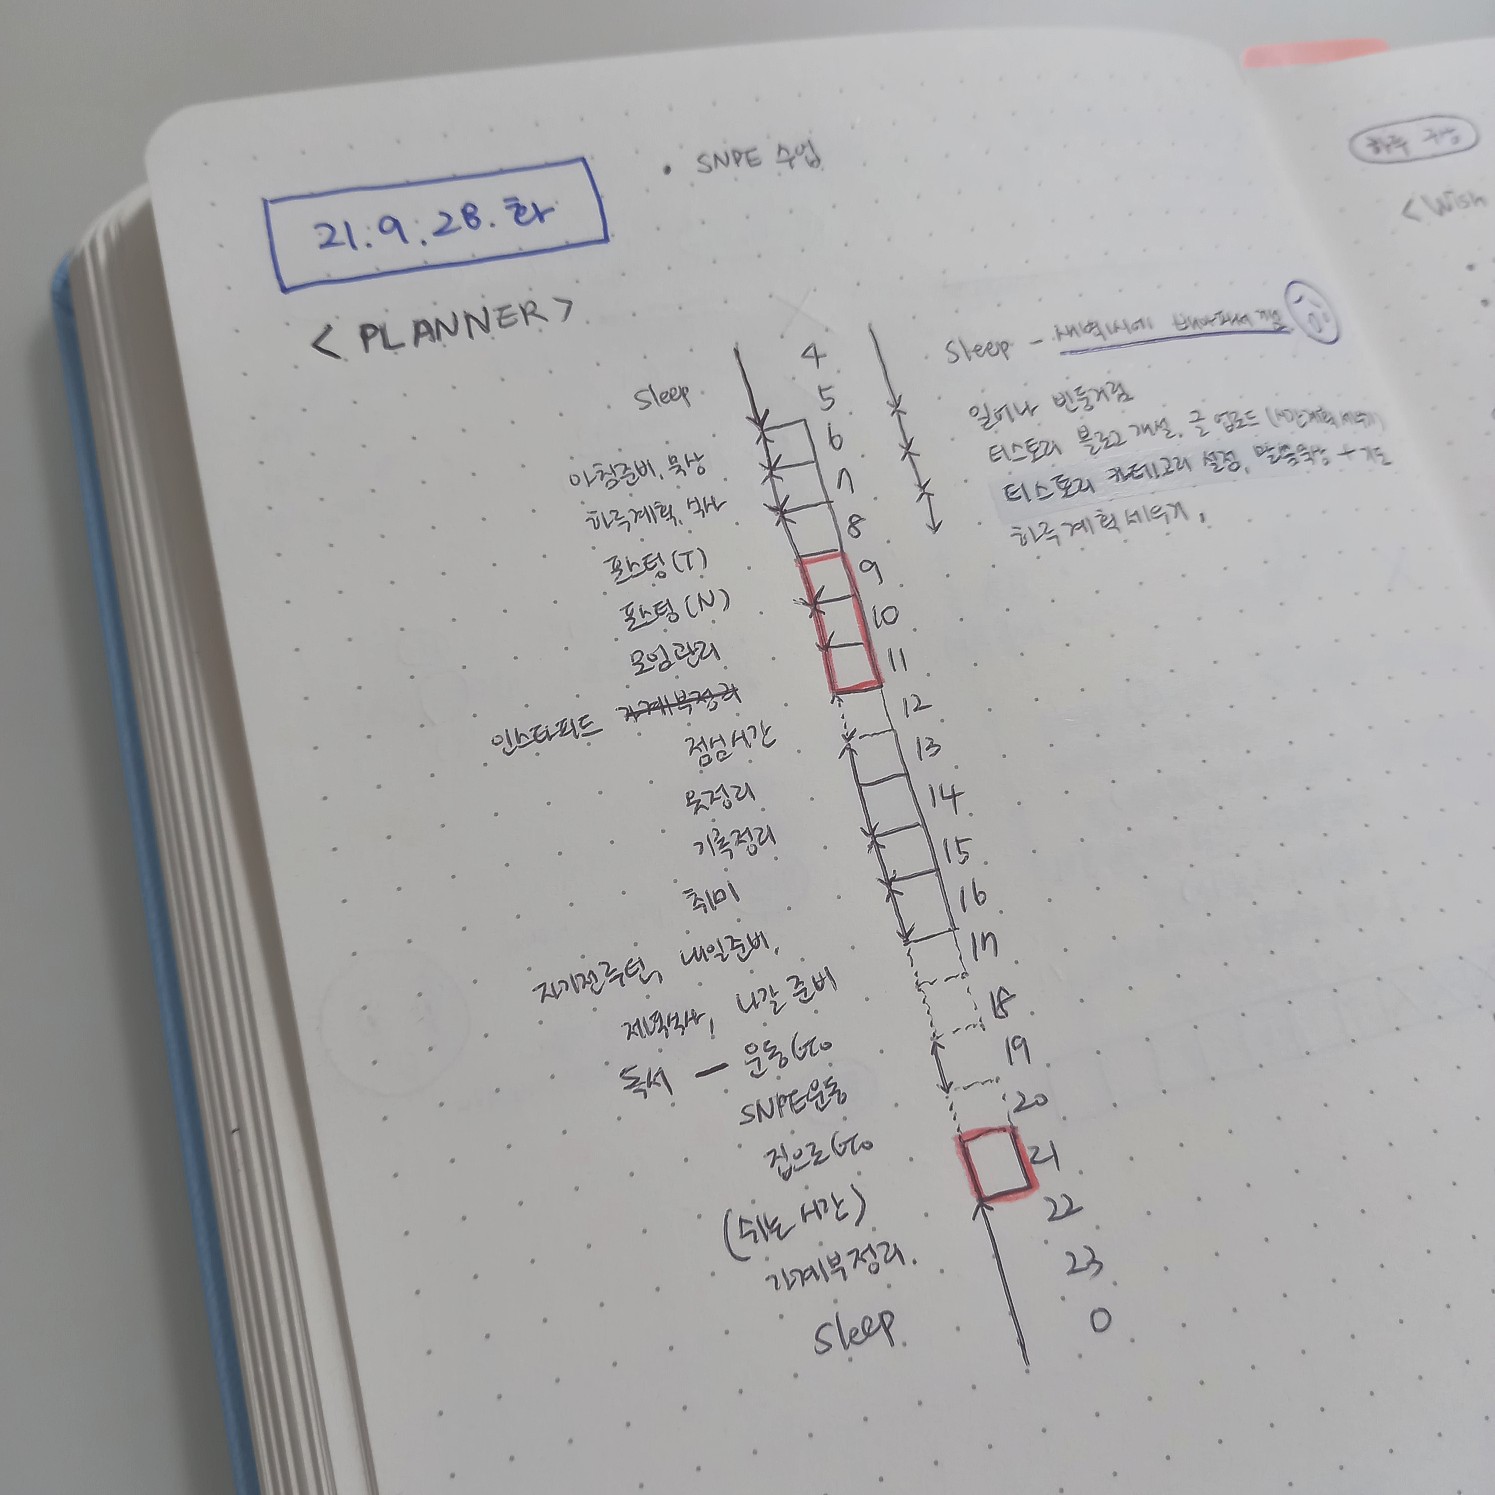 • SNPE 수업
21.9.28.화
< PLANNER >
4
Sleep
5
6
아침준비, 묵상
7
하루계획, 식사
8
포스팅(T)
9
포스팅(N)
10
모임관리
11
인스타피드 가계부정리
12
점심시간
13
옷정리
14
기록정리
15
취미
16
자기전루틴, 내일준비,
17
제녁식사, 나갈 준비
18
독서 — 운동 Go
19
SNPE운동
20
집으로 Go
21
(쉬는 시간)
22
가계부정리.
23
Sleep
0
Sleep - 새벽에
일어나 빈둥거림
티스토리 블로그 개설, 글 업로드 (시간계획세우기)
티스토리 카테고리 설정, 말씀묵상 + 기도
하루계획세우기,
하루 구상
< Wish